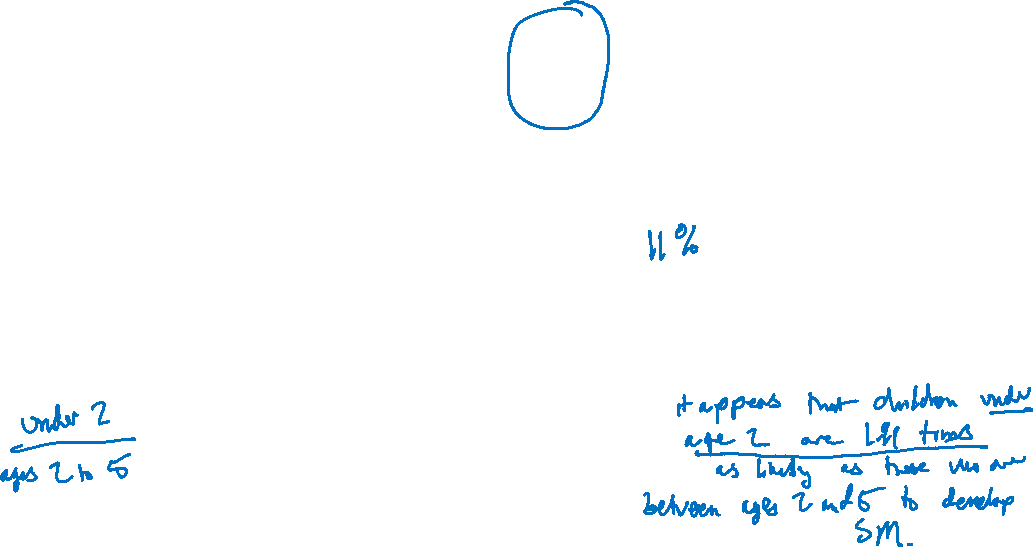 11%
under 2
ages 2 to 5
it appears that children under
age 2 are 1.41 times
as likely as those who are
between ages 2 and 5 to develop
SM.